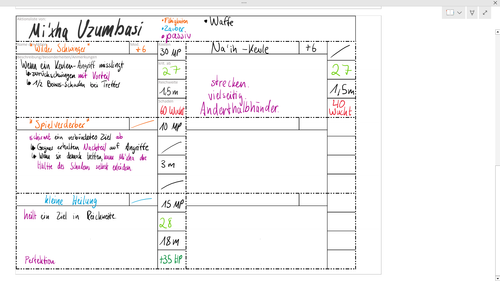 Mi'xha Uzumbasi
• Fähigkeiten
• Zauber
• passiv
• Waffe
• Wilder Schwinger
+6
30 MP
Na'in-Keule
+6
Wenn ein Keulen-Angriff misslingt
↳ zurückschwingen mit Vorteil
↳ 1/2 Bonus-Schaden bei Treffer
27
1,5m
60 Wucht
strecken.
vielseitig.
Anderthalbhänder
27
1,5m
40
Wucht
• Spielverderber
10 MP
schirmt ein verbündetes Ziel ab
↳ Gegner erhalten Nachteil auf Angriffe
↳ Wenn sie dennoch treffen, kann Mi'xha die
Hälfte des Schadens selbst erleiden
3m
kleine Heilung
15 MP
heilt ein Ziel in Reichweite
28
18m
Perfektion
+35 HP